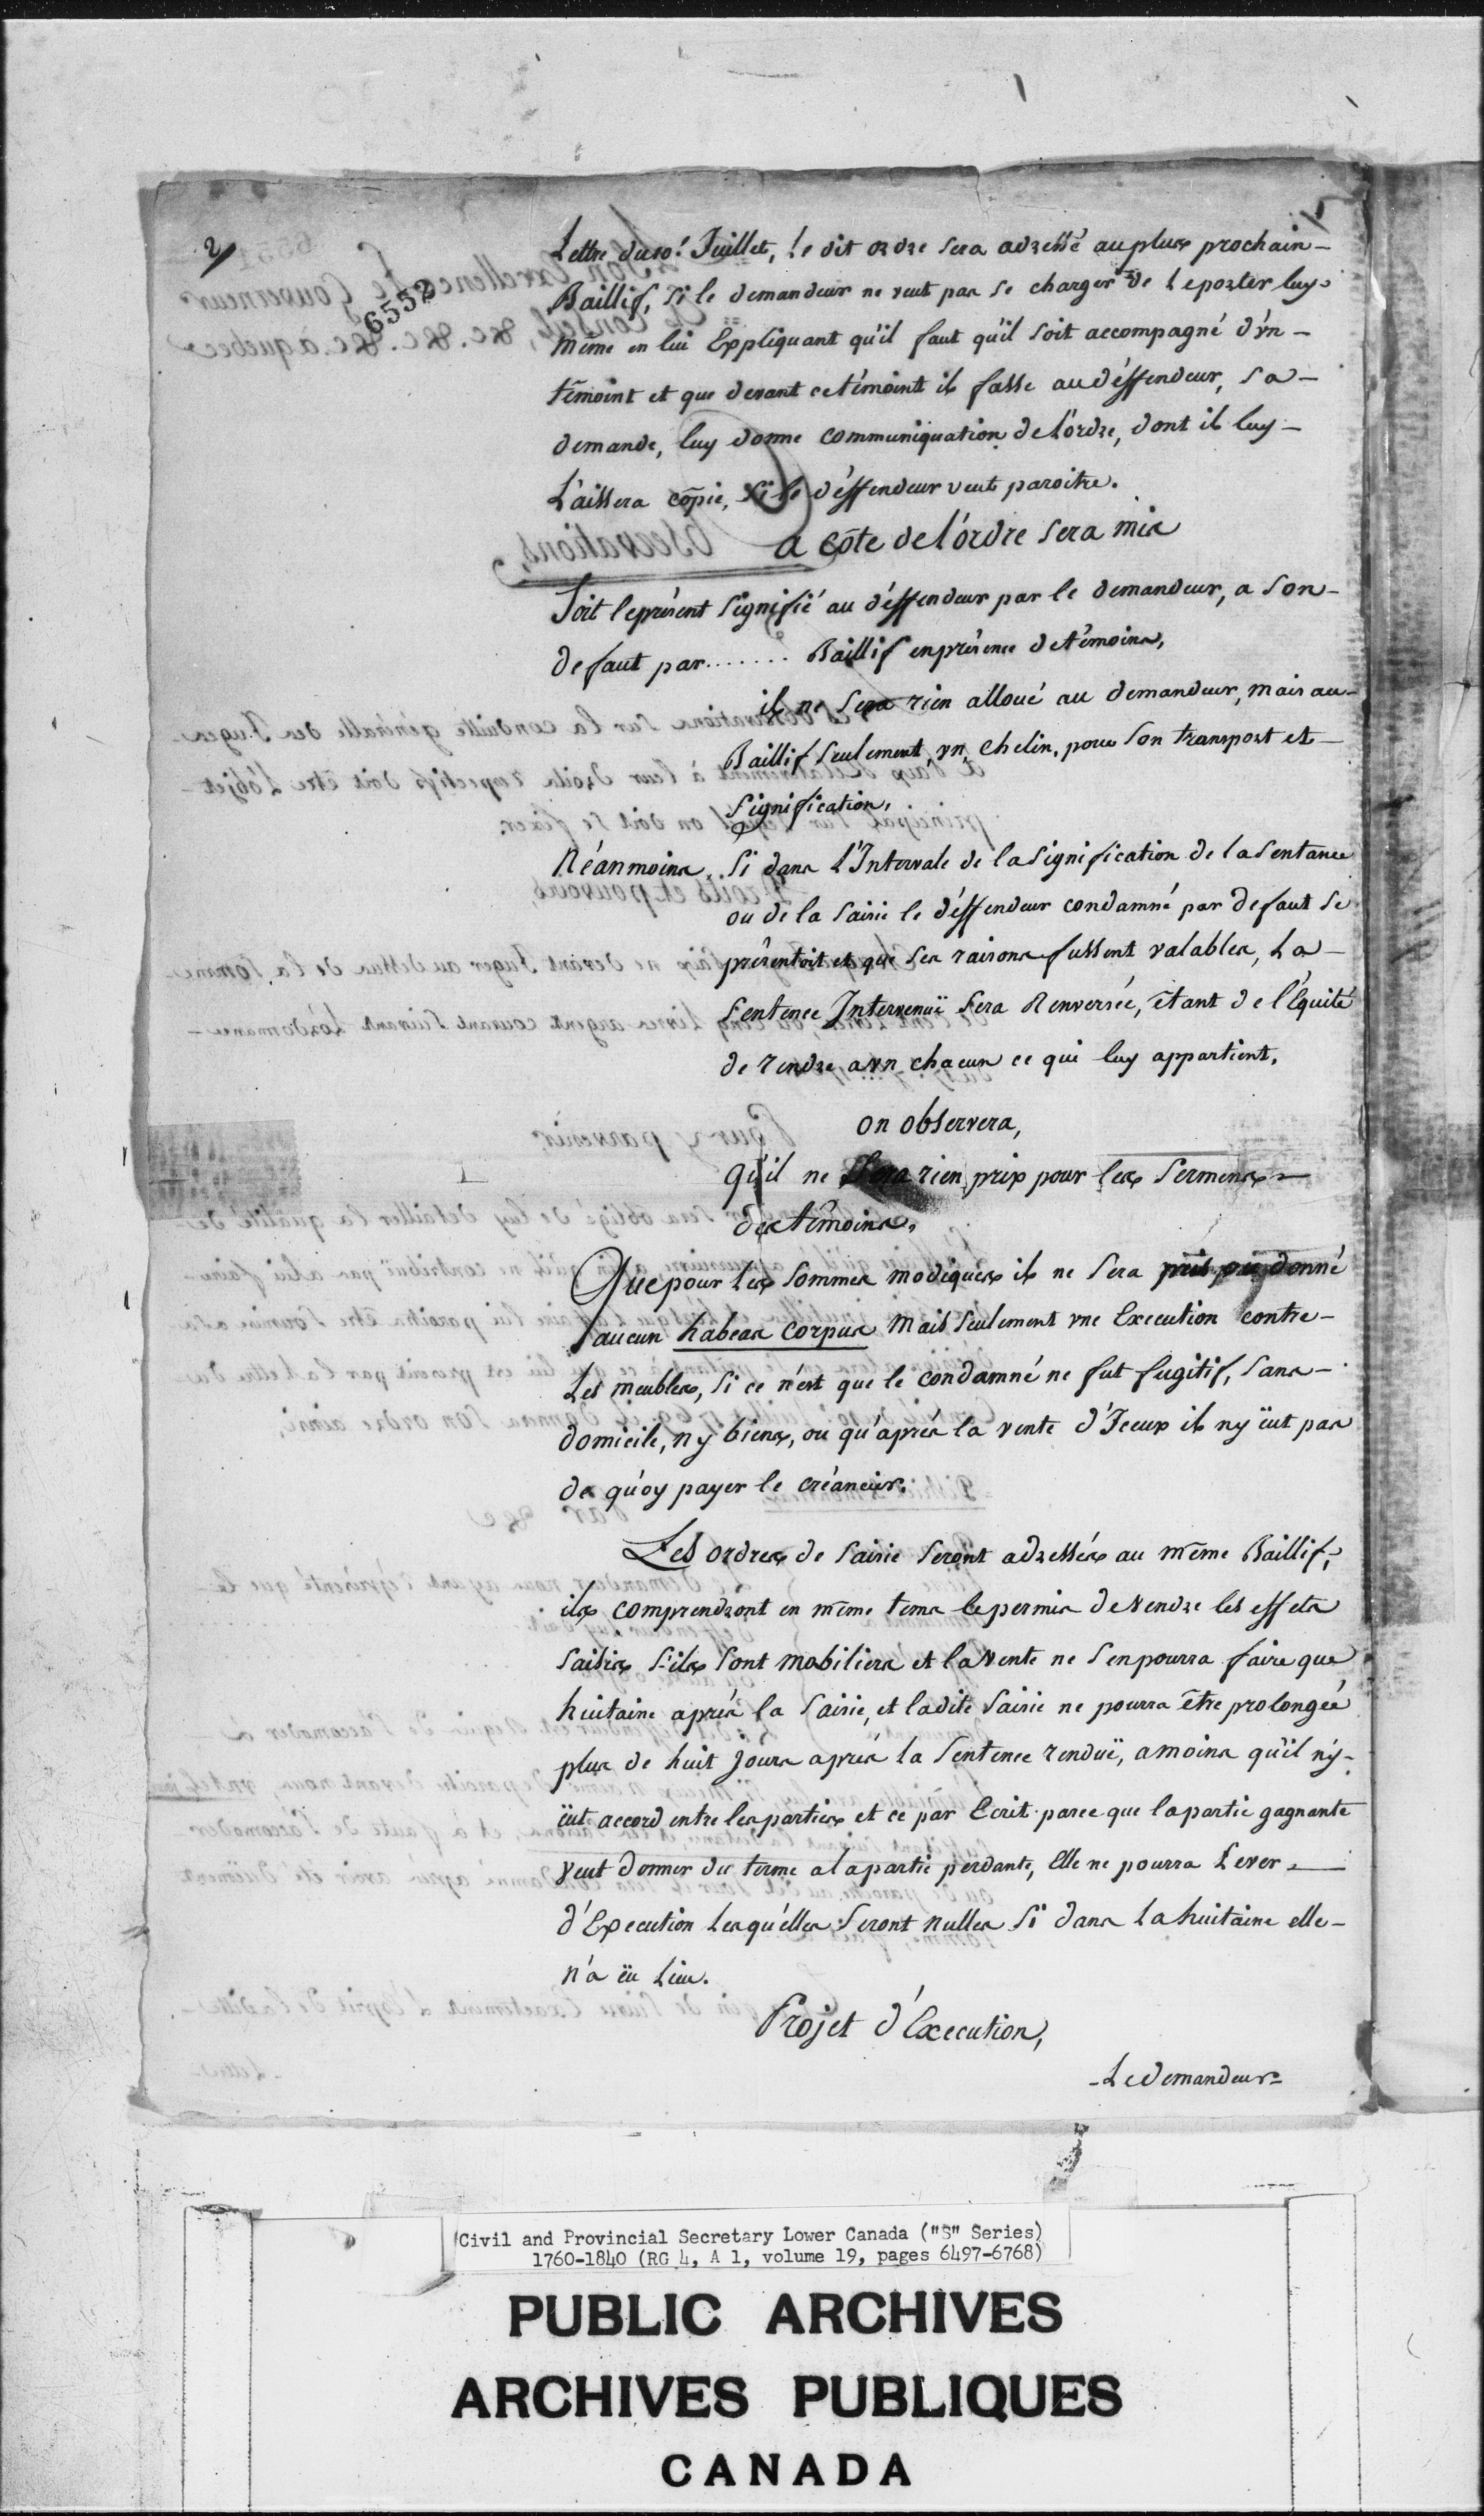 2/
6552
Lettre du 10.t Juillet, le dit ordre sera adressé au plus prochain-
Baillif, si le demandeur ne veut pas se charger de le porter luy-
même en lui Expliquant qu'il faut qu'il soit accompagné d'vn-
témoint et que devant ce témoint il fasse au déffendeur, sa-
demande, luy donne communiquation de l'ordre, dont il luy-
Laissera copie, si le déffendeur veut paroitre.
a côte de l'ordre sera mis
Soit le présent Signifié au déffendeur par le demandeur, a son-
defaut par....... Baillif en présence de témoins,
il ne sera rien alloué au demandeur, mais au-
Baillif seulement vn chelin, pour son transport et-
Signification.
Néanmoins, Si dans L'Intervale de la signification de la sentance
ou de la saisie le déffendeur condamné par defaut se
présentoit et que ses raisons fussent valables, La-
Sentence Intervenuë sera Renversée, étant de l'Équité
de rendre a vn chacun ce qui luy appartient.
on observera,
qu'il ne Sera rien pris pour les Sermens-
des témoins.
Que pour les sommes modiques il ne sera pris ou donné
aucun habeas corpus mais seulement vne Execution contre-
Les meubles, si ce n'est que le condamné ne fut fugitif, sans-
domicile, ny biens, ou qu'après la vente d'Iceux il ny ëut pas
de quoy payer le créancier.
Les ordres de saisie seront adressés au même Baillif,
ils comprendront en même tems le permis de vendre les effets
saisis s'ils sont mobiliers et la vente ne s'en pourra faire que
huitaine après la saisie, et ladite saisie ne pourra être prolongée
plus de huit jours après la sentence renduë, amoins qu'il n'y-
ëut accord entre les parties et ce par Ecrit parce que la partie gagnante
veut donner du terme a la partie perdante, Elle ne pourra Lever-
d'Execution Lesqu'elles seront nulles si dans la huitaine elle-
n'a ëu Lieu.
Projet d'Execution,
-Le demandeur-
Civil and Provincial Secretary Lower Canada ("S" Series)
1760-1840 (RG 4, A 1, volume 19, pages 6497-6768)
PUBLIC ARCHIVES
ARCHIVES PUBLIQUES
CANADA